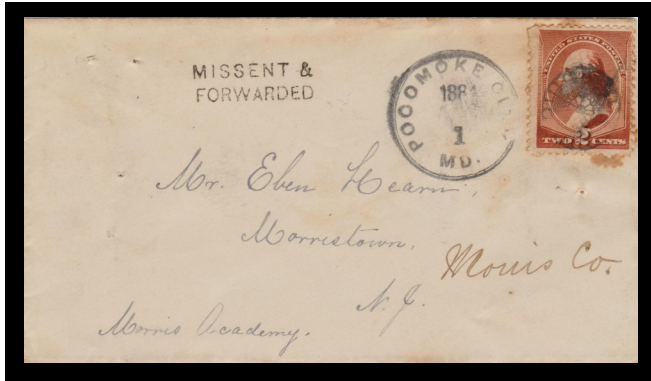 MISSENT &
FORWARDED
POCOMOKE CITY
188
1
MD.
UNITED STATES POSTAGE
TWO 2 CENTS
Mr. Eben Hearn,
Morristown,
Morris Co.
N. J.
Morris Academy.